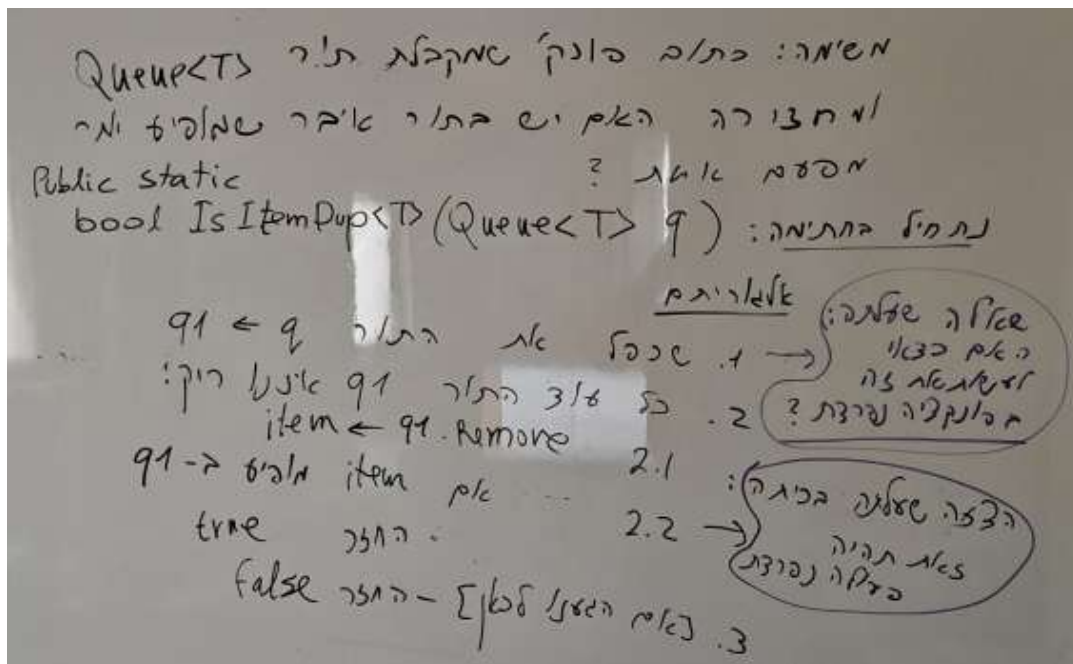 משימה: כתוב פונק' שמקבלת תור Queue<T>
ומחזירה האם יש בתור איבר שמופיע יותר
מפעם אחת ?
Public static
bool IsItemDup<T>(Queue<T> q)
נתחיל בחתימה:
אלגוריתם
1. שכפל את התור q1 ← q
2. כל עוד התור q1 איננו ריק:
2.1 item ← q1.Remove
2.2 אם item מופיע ב-q1
החזר true
3. [אם הגענו לכאן] – החזר false
שאלה שעלתה:
האם כדאי
לעשות את זה
בפונקציה נפרדת ?
הצעה שעלתה בכיתה:
זאת תהיה
פעולה נפרדת